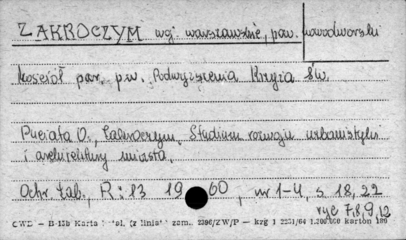 ZAKROCZYM woj. warszawskie, pow. nowodworski
kościół par. p.w. Podwyższenia Krzyża św.
Puciata O., Zakroczym. Studium rozwoju urbanistyki
i architektury miasta.
Ochr. Zab., R: 13 1960, nr 1-4, s. 18, 22
ryc 7,8,9,12
CWD — B-13b Karta (z linia) zam. 2396/ZW/P — kzg 1 2251/64 1.200.000 karton 180